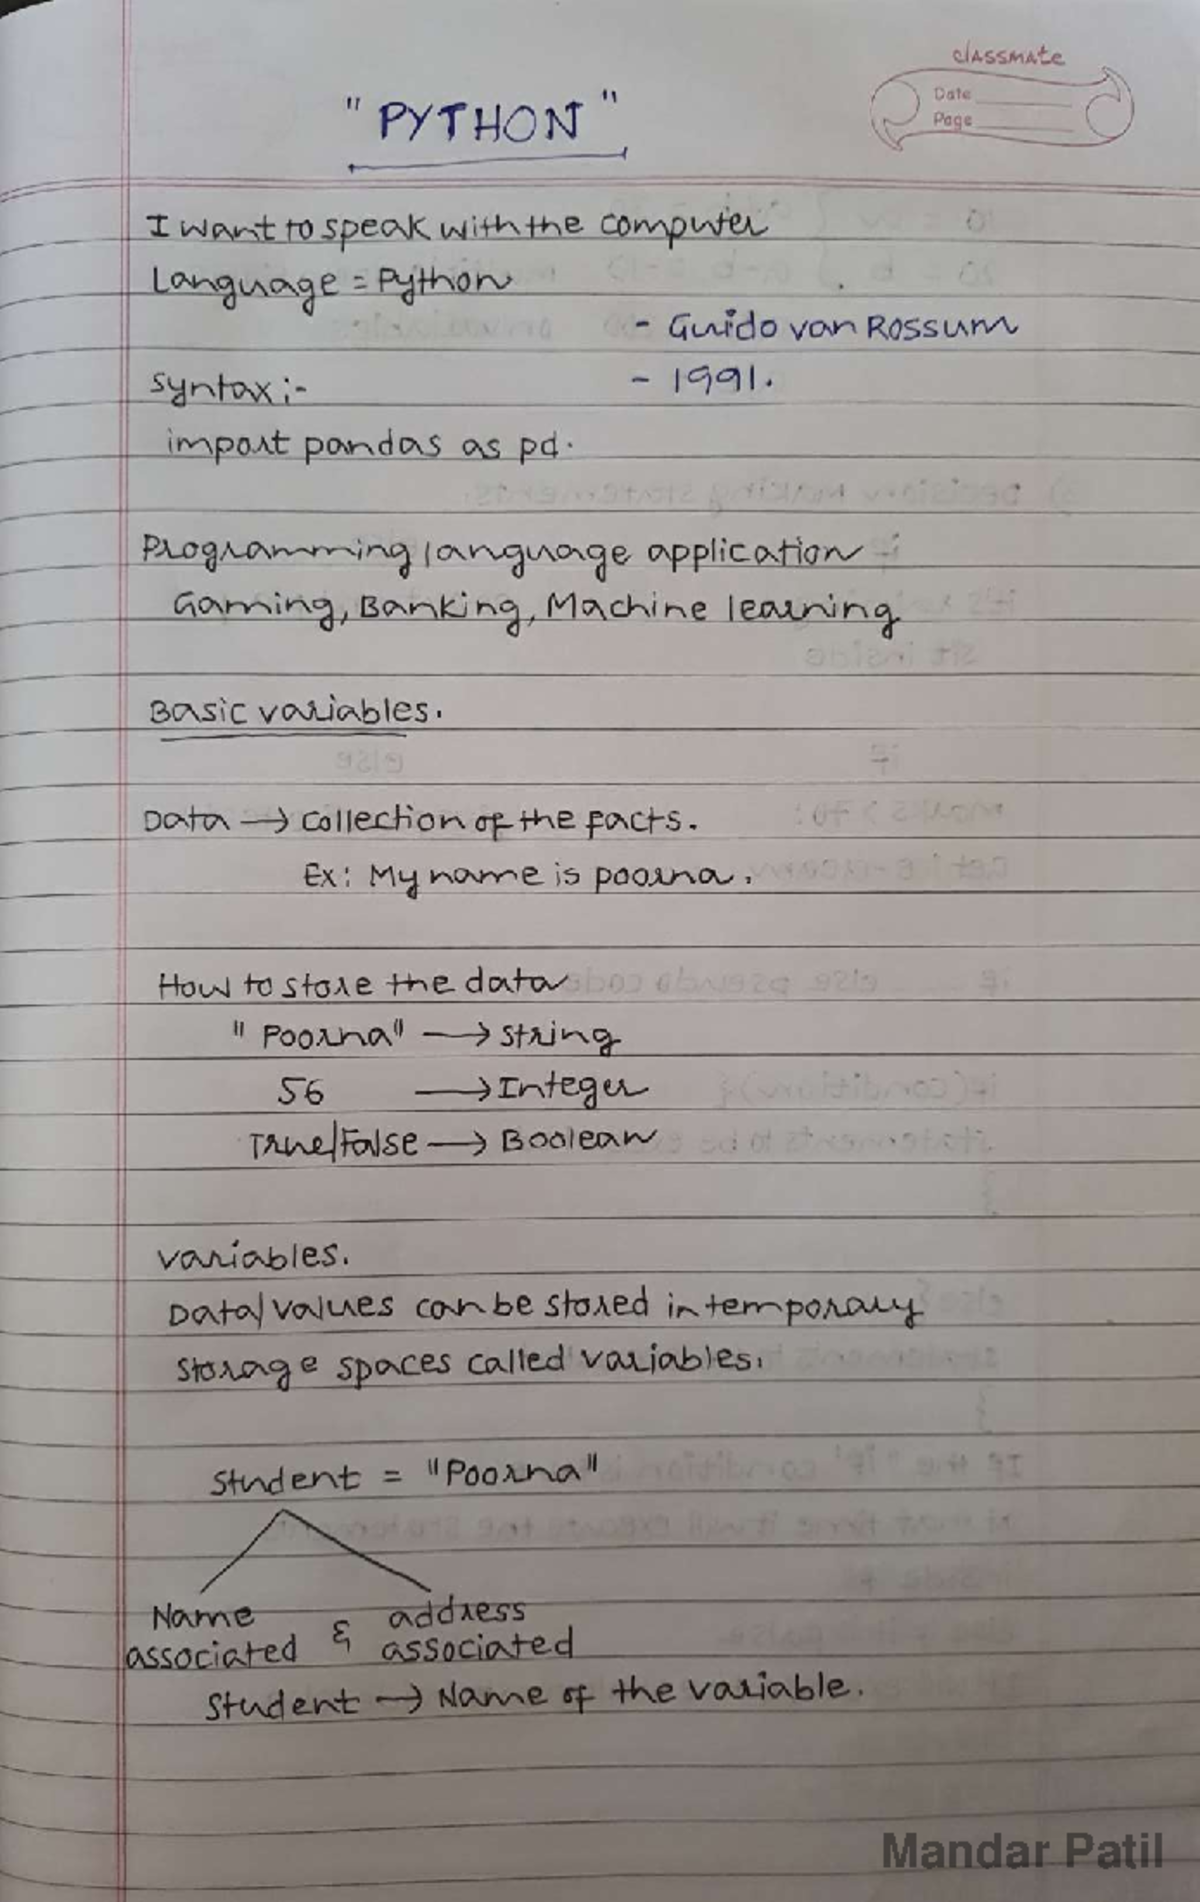 classmate
Date
Page
"PYTHON"
I want to speak with the computer
Language = Python
- Guido van Rossum
syntax :- - 1991.
import pandas as pd.
Programming language application
Gaming, Banking, Machine learning
Basic variables.
Data → collection of the facts.
Ex: My name is poorna.
How to store the data
"Poorna" → string
56 → Integer
True/False → Boolean
variables.
Data/values can be stored in temporary
storage spaces called variables.
Student = "Poorna"
Name & address
associated associated
Student → Name of the variable.
Mandar Patil